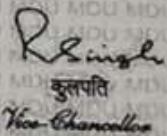 RSingh
कुलपति
Vice-Chancellor